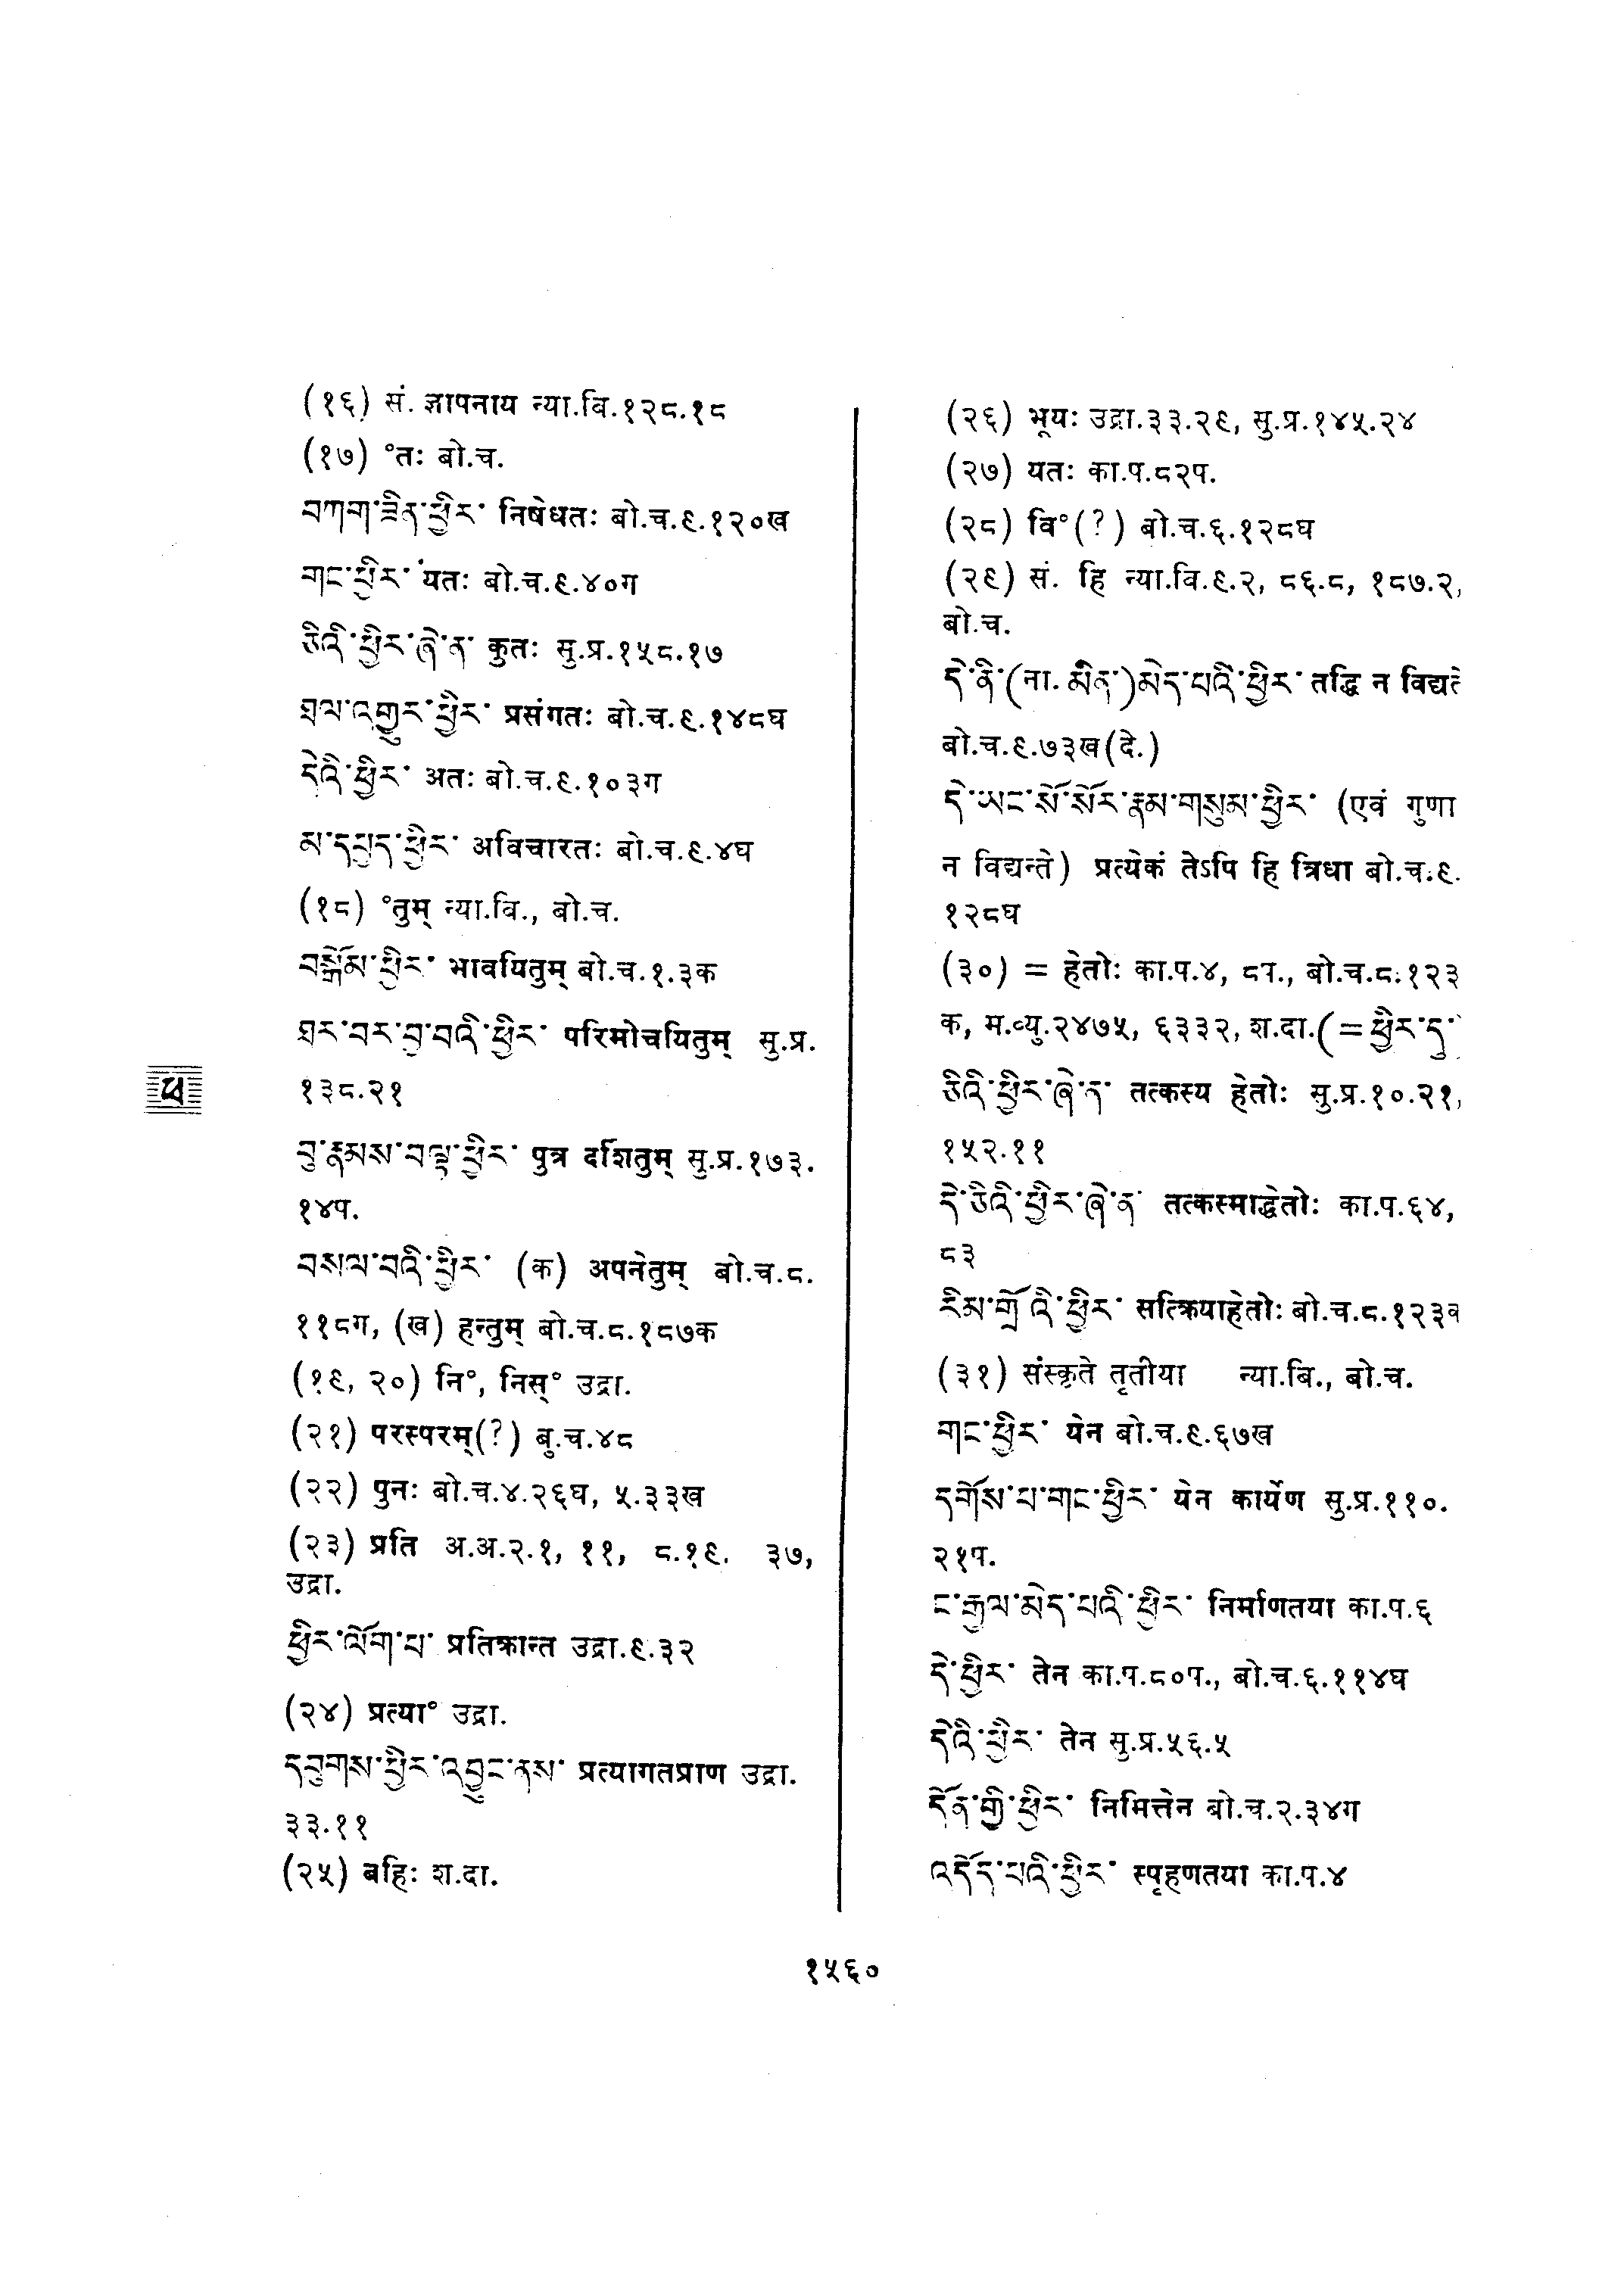 (१६) सं. ज्ञापनाय न्या.बि.१२८.१८
(१७) °तः बो.च.
བཀག་ཟིན་ཕྱིར་ निषेधतः बो.च.९.१२०ख
གང་ཕྱིར་ यतः बो.च.९.४०ग
ཅིའི་ཕྱིར་ཞེ་ན་ कुतः सु.प्र.१५८.१७
ཐལ་འགྱུར་ཕྱིར་ प्रसंगतः बो.च.९.१४८घ
དེའི་ཕྱིར་ अतः बो.च.९.१०३ग
མ་དཔྱད་ཕྱིར་ अविचारतः बो.च.९.४घ
(१८) °तुम् न्या.बि., बो.च.
བསྒོམ་ཕྱིར་ भावयितुम् बो.च.१.३क
ཐར་བར་བྱ་བའི་ཕྱིར་ परिमोचयितुम् सु.प्र.
ཕ
१३८.२१
བུ་རྣམས་བལྟ་ཕྱིར་ पुत्र दर्शितुम् सु.प्र.१७३.
१४प.
བསལ་བའི་ཕྱིར་ (क) अपनेतुम् बो.च.८.
११८ग, (ख) हन्तुम् बो.च.८.१८७क
(१९, २०) नि°, निस्° उद्रा.
(२१) परस्परम्(?) बु.च.४८
(२२) पुनः बो.च.४.२६घ, ५.३३ख
(२३) प्रति अ.अ.२.१, ११, ८.१९. ३७,
उद्रा.
ཕྱིར་ལོག་པ་ प्रतिक्रान्त उद्रा.९.३२
(२४) प्रत्या° उद्रा.
དབུགས་ཕྱིར་འབྱུང་ནས་ प्रत्यागतप्राण उद्रा.
३३.११
(२५) बहिः श.दा.
(२६) भूयः उद्रा.३३.२९, सु.प्र.१४५.२४
(२७) यतः का.प.८२प.
(२८) वि°(?) बो.च.६.१२८घ
(२९) सं. हि न्या.वि.९.२, ८६.८, १८७.२,
बो.च.
དེ་ནི་(ना. མིན་)མེད་པའི་ཕྱིར་ तद्धि न विद्यते
बो.च.९.७३ख(दे.)
དེ་ཡང་སོ་སོར་རྣམ་གསུམ་ཕྱིར་ (एवं गुणा
न विद्यन्ते) प्रत्येकं तेऽपि हि त्रिधा बो.च.९.
१२८घ
(३०) = हेतोः का.प.४, ८प., बो.च.८.१२३
क, म.व्यु.२४७५, ६३३२, श.दा.(=ཕྱིར་དུ་
ཅིའི་ཕྱིར་ཞེ་ན་ तत्कस्य हेतोः सु.प्र.१०.२१,
१५२.११
དེ་ཅིའི་ཕྱིར་ཞེ་ན་ तत्कस्माद्धेतोः का.प.६४,
८३
རིམ་གྲོ་འི་ཕྱིར་ सत्क्रियाहेतोः बो.च.८.१२३
(३१) संस्कृते तृतीया न्या.बि., बो.च.
གང་ཕྱིར་ येन बो.च.९.६७ख
དགོས་པ་གང་ཕྱིར་ येन कार्येण सु.प्र.११०.
२१प.
ང་རྒྱལ་མེད་པའི་ཕྱིར་ निर्माणतया का.प.६
དེ་ཕྱིར་ तेन का.प.८०प., बो.च.६.११४घ
དེའི་ཕྱིར་ तेन सु.प्र.५६.५
དོན་གྱི་ཕྱིར་ निमित्तेन बो.च.२.३४ग
འདོད་པའི་ཕྱིར་ स्पृहणतया का.प.४
१५६०